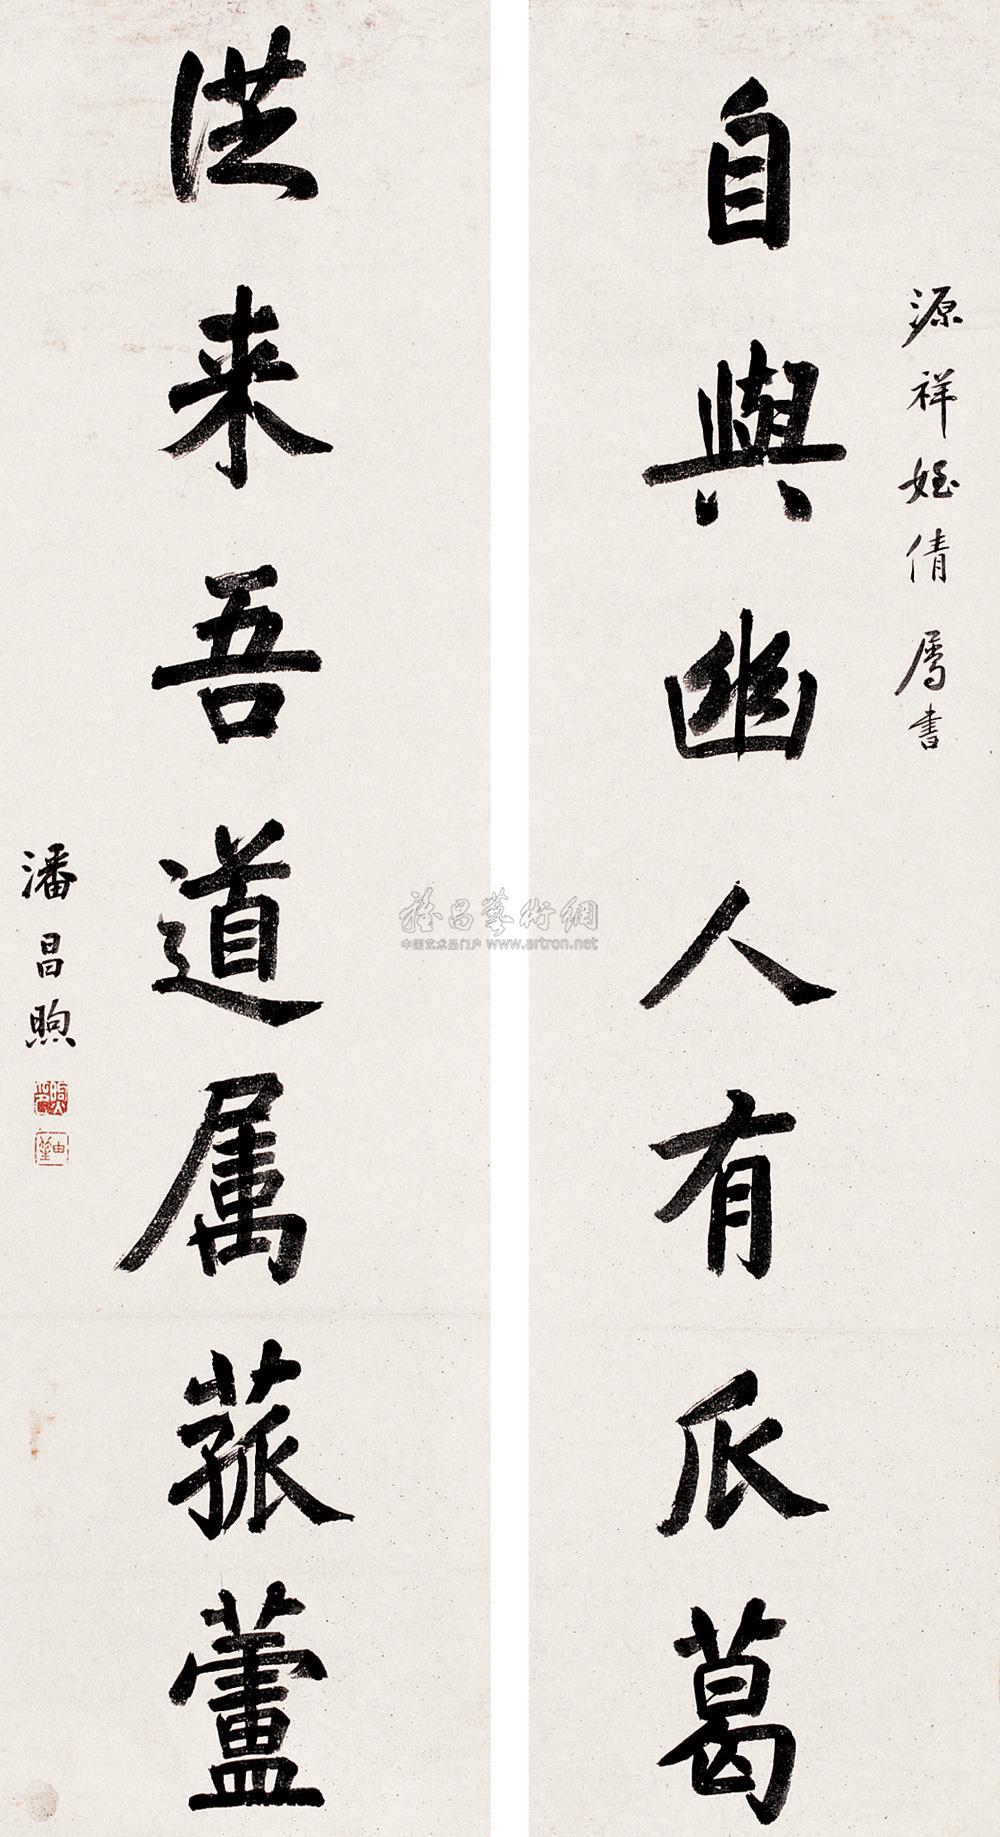 源祥姪倩屬書
自與幽人有瓜葛
從来吾道属菰蘆
潘昌煦
雅昌藝術網
中国艺术品门户 www.artron.net